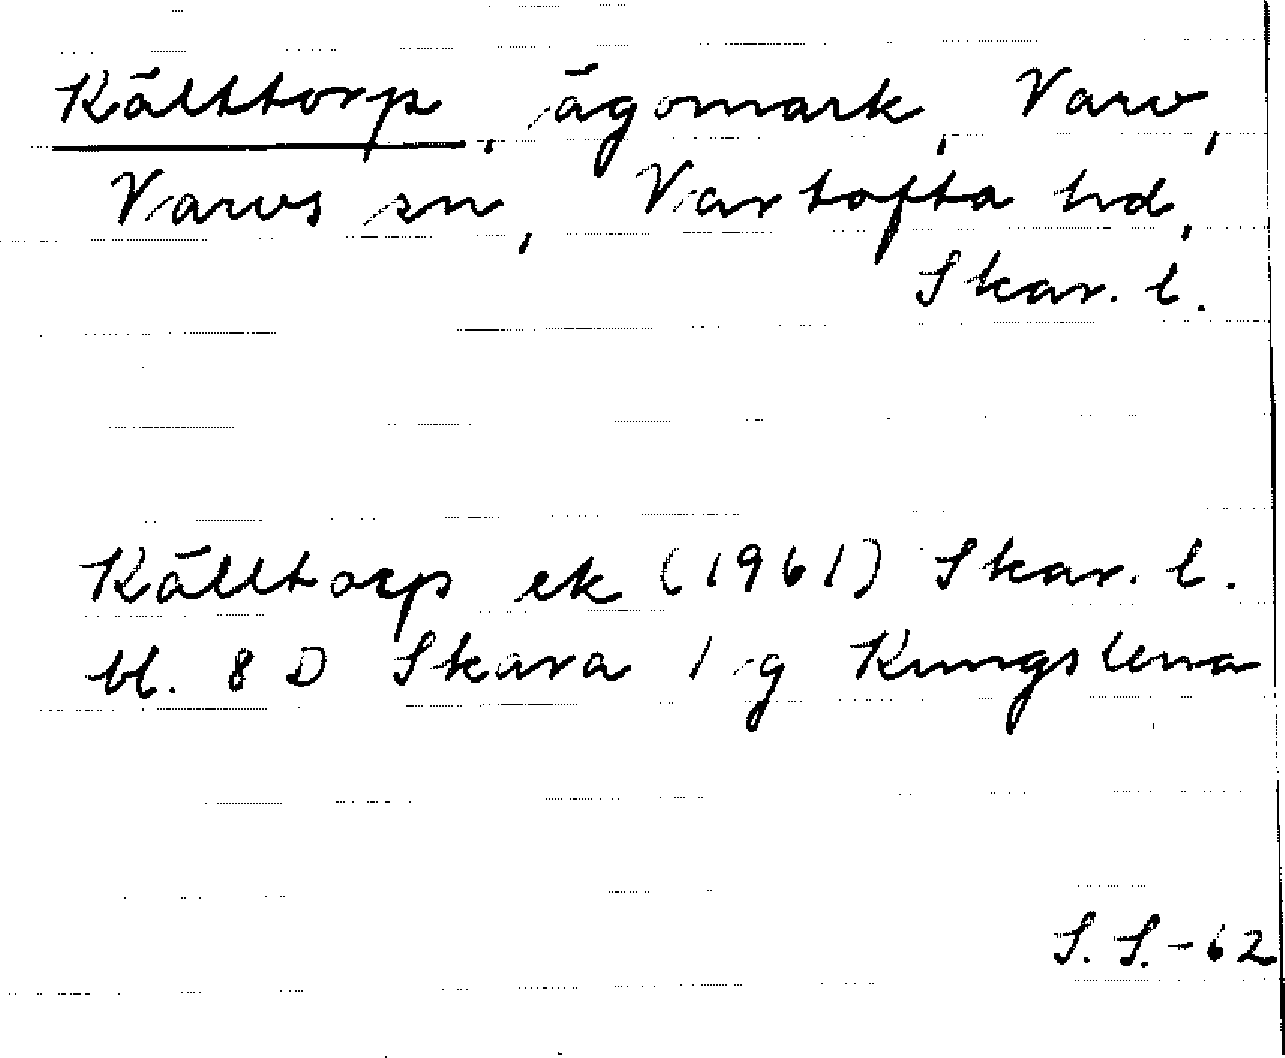 Källtorp, ägomark, Varv,
Varvs sn, Vartofta hd,
Skar. l.
Källtorp ek (1961) Skar. l.
bl. 8 D Skara 1 g Kungslena
S. S. - 62